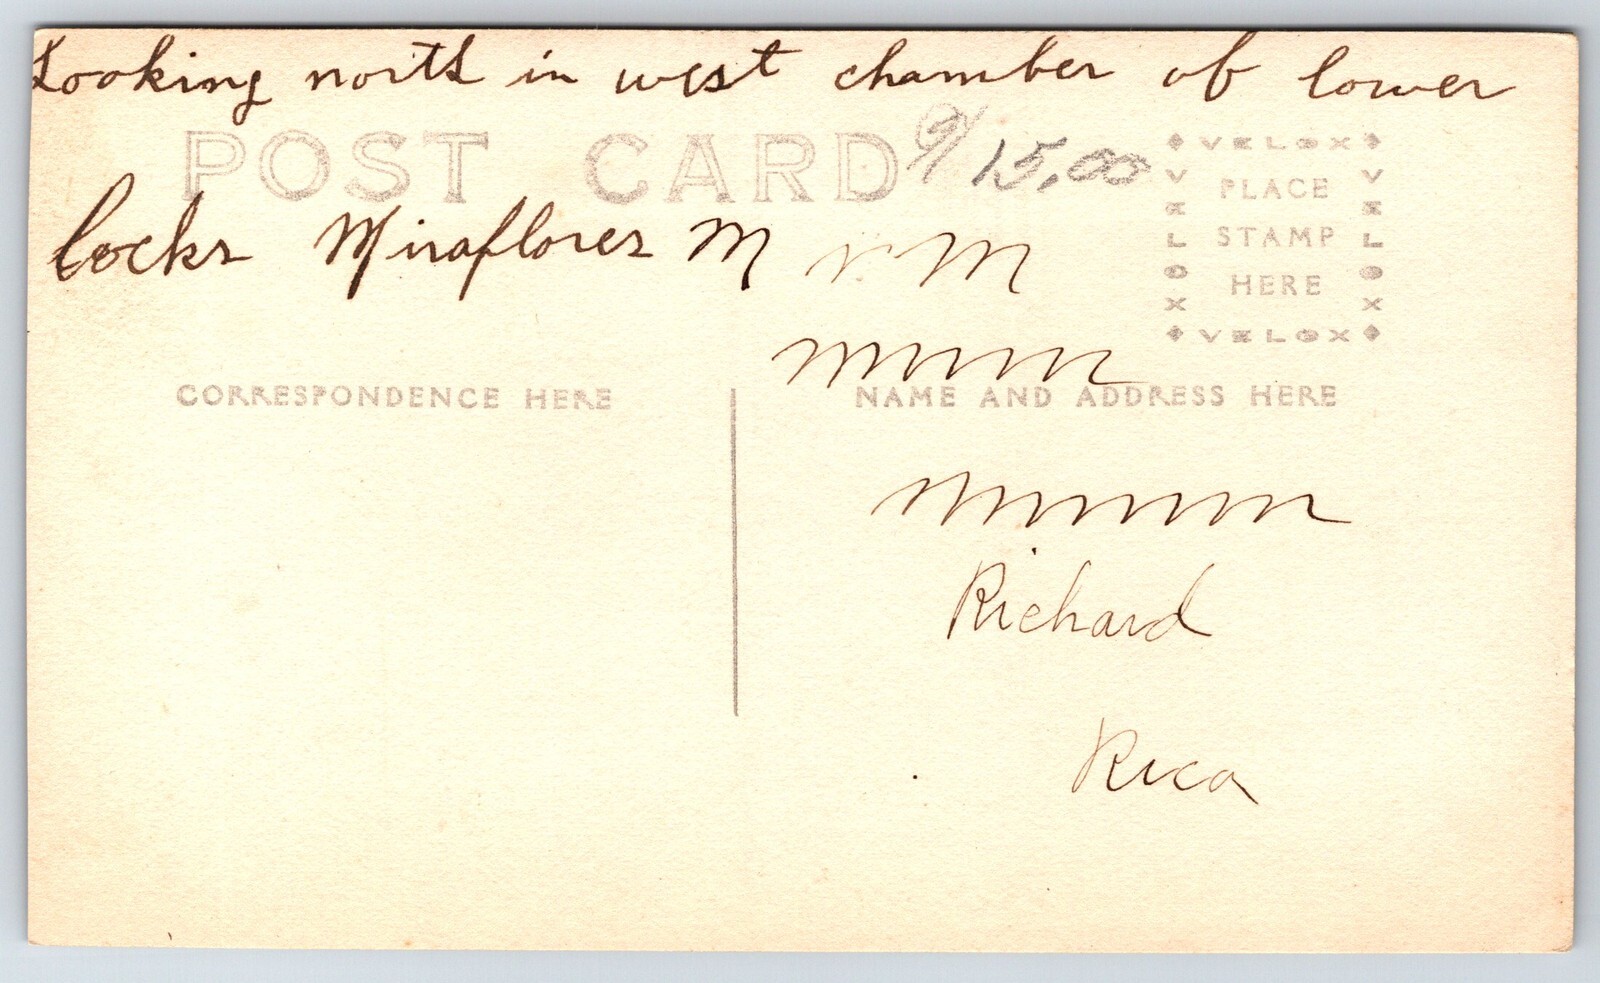 Looking north in west chamber of lower
POST CARD
15.00
locks Miraflores M
VELOX
PLACE
STAMP
HERE
VELOX
VELOX
VELOX
CORRESPONDENCE HERE
NAME AND ADDRESS HERE
Richard
Rica